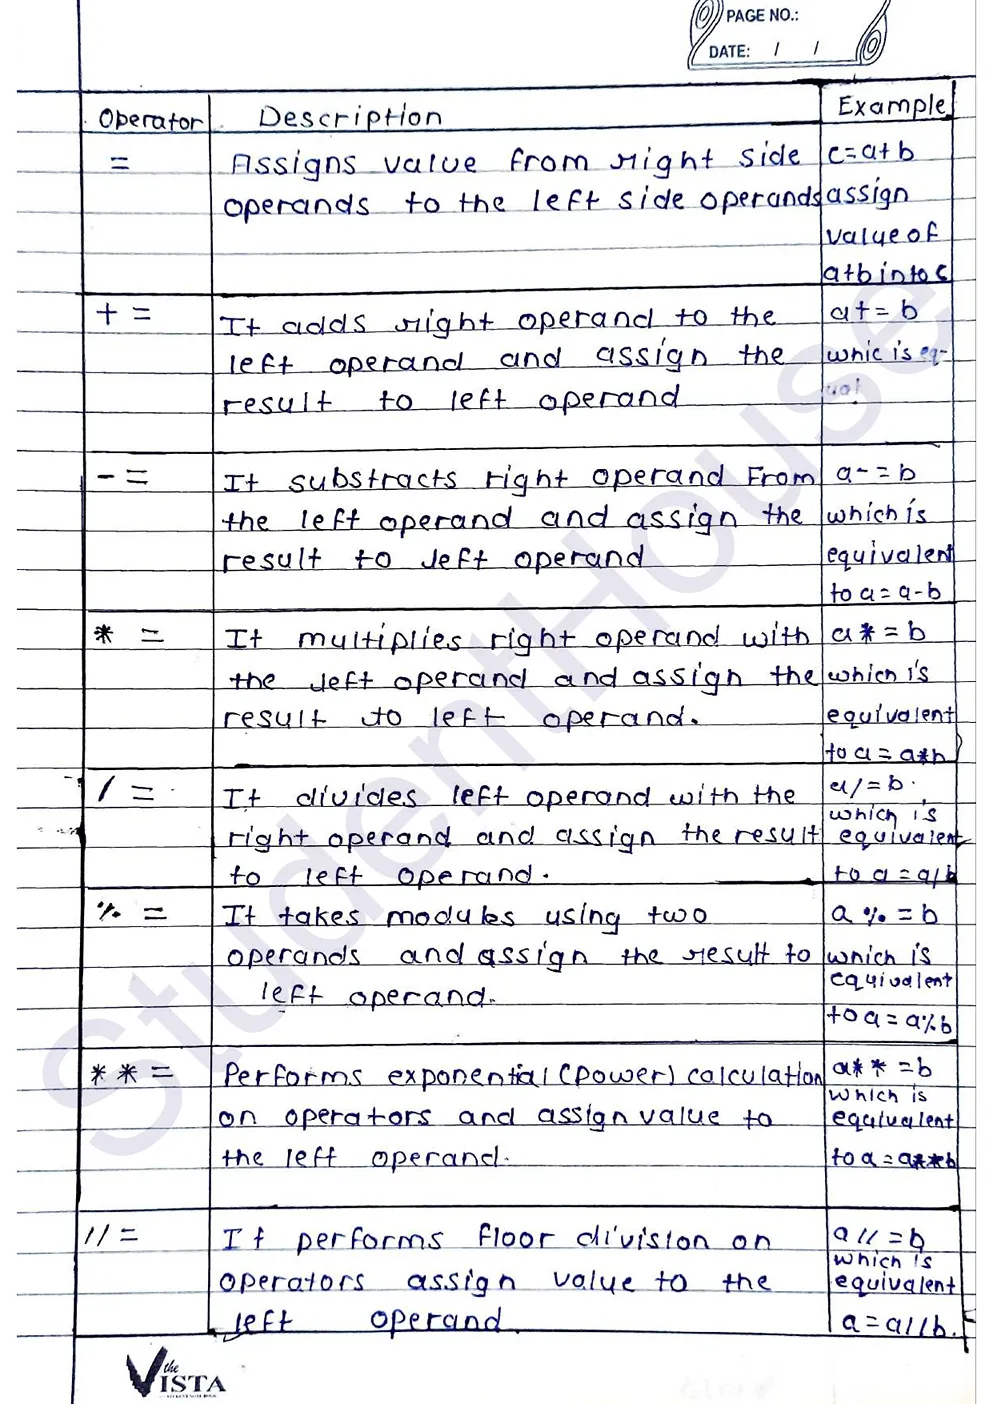 PAGE NO.:
DATE: / /
Operator Description Example
= Assigns value from right side c=a+b
operands to the left side operands assign
value of
a+b into c
+= It adds right operand to the a+=b
left operand and assign the whic is eq-
result to left operand ual
-= It substracts right operand From a-=b
the left operand and assign the which is
result to left operand equivalent
to a=a-b
*= It multiplies right operand with a*=b
the left operand and assign the which is
result to left operand. equivalent
to a=a*b
/= It divides left operand with the a/=b.
which is
right operand and assign the result equivalent
to left operand. to a=a/b
%= It takes modules using two a%=b
operands and assign the result to which is
left operand. equivalent
to a=a%b
**= Performs exponential(power) calculation a**=b
which is
on operators and assign value to equivalent
the left operand. to a=a**b
//= It performs floor division on a//=b
which is
operators assign value to the equivalent
left operand. a=a//b.
the
VISTA
StudentHouse